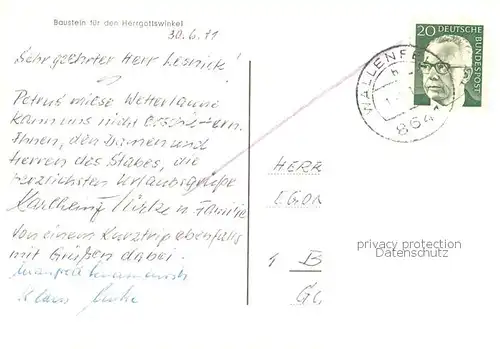 Baustein für den Herrgottswinkel
30.6.71
Sehr geehrter Herr Lesnick!
Petrus' miese Wetterlaune
kann uns nicht erschüttern.
Ihnen, den Damen und
Herren des Stabes, die
herzlichsten Urlaubsgrüße
Karlheinz u. Familie
Von einem Kurztrip ebenfalls
mit Grüßen dabei.
Klaus
20 DEUTSCHE
BUNDESPOST
WALLENFELS
864
HERR
EGON
privacy protection
Datenschutz